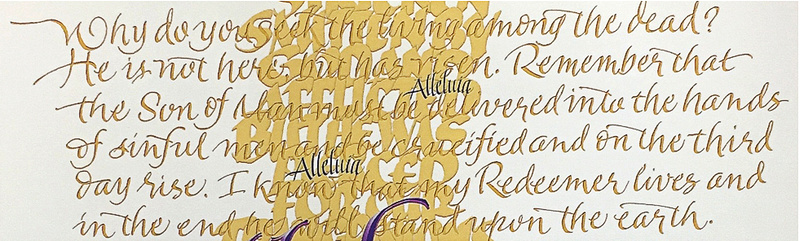 Why do you seek the living among the dead?
He is not here, but has risen. Remember that
Alleluia
the Son of Man must be delivered into the hands
of sinful men and be crucified and on the third
Alleluia
day rise. I know that my Redeemer lives and
in the end he will stand upon the earth.